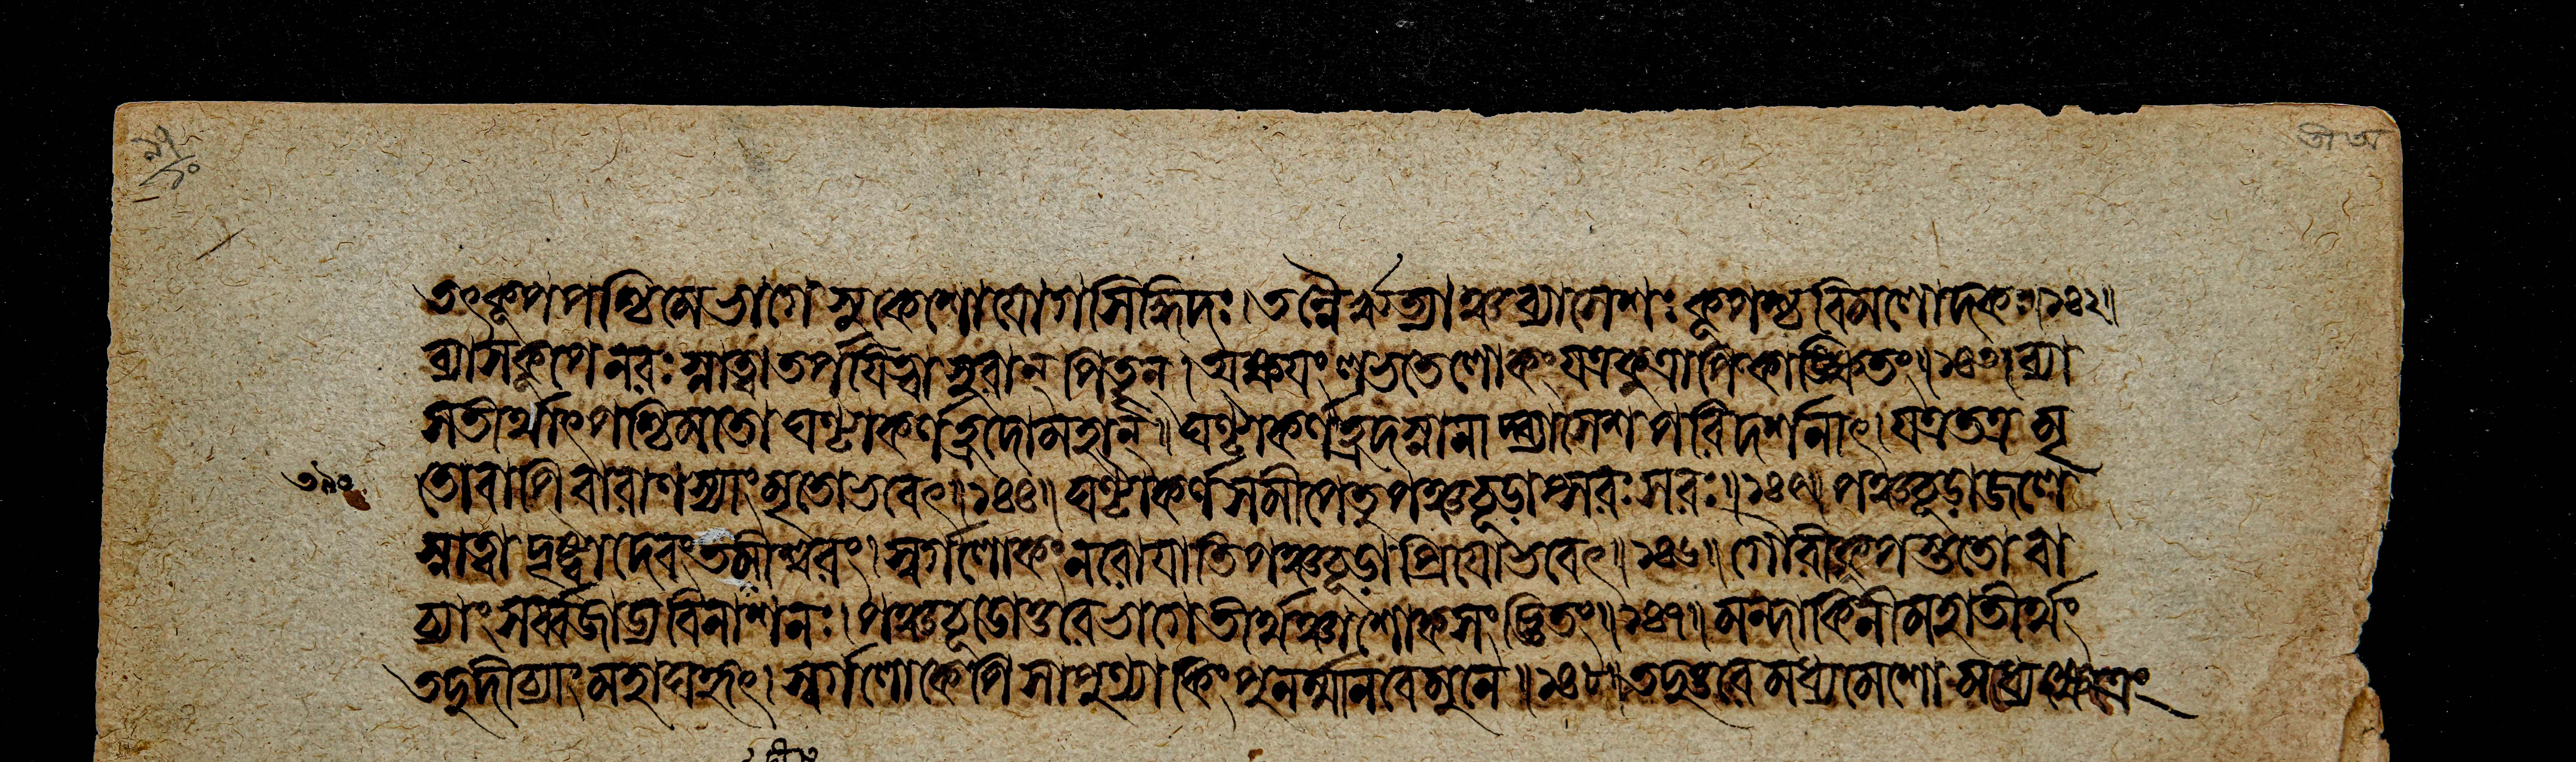 তৎকূপপশ্চিমে ভাগে সুকেশো যোগসিদ্ধিদঃ। তন্নৈরৃত্যাঞ্চ ব্যাসেশঃ কূপশ্চ বিমলোদকঃ॥১৪২॥
ব্যাসকূপে নরঃ স্নাত্বা তর্পযিত্বা সুরান্ পিতৄন্। অক্ষযং লভতে লোকং যত্র কুত্রাপি কাঙ্ক্ষিতং॥১৪৩॥ ব্যা
সতীর্থাৎ পশ্চিমতো ঘণ্টাকর্ণহ্রদো মহান্॥ ঘণ্টাকর্ণহ্রদস্নানাদ্ব্যাসেশপরিদর্শনাৎ। যত্র তত্র মৃ
তো বাপি বারাণস্যাং মৃতো ভবেৎ॥১৪৪॥ ঘণ্টাকর্ণসমীপে তু পঞ্চচূড়াপ্সরঃ সরঃ॥১৪৫॥ পঞ্চচূড়াজলে
স্নাত্বা দৃষ্ট্বা দেবং তমীশ্বরং। স্বর্গলোকং নরো যাতি পঞ্চচূড়াপ্রিযো ভবেৎ॥১৪৬॥ গৌরীকূপস্ততো বা
য্যাং সর্ব্বজাড্যবিনাশনঃ। পঞ্চচূড়োত্তরে ভাগে তীর্থঞ্চাশোকসংজ্ঞিতং॥১৪৭॥ মন্দাকিনীমহাতীর্থং
তদুদীচ্যাং মহাঘহৃং। স্বর্গলোকেপি সা পুণ্যা কিং পুনর্ম্মানবে মুনে॥১৪৮॥ তদুত্তরে মধ্যমেশো মধ্যেক্ষেত্রং